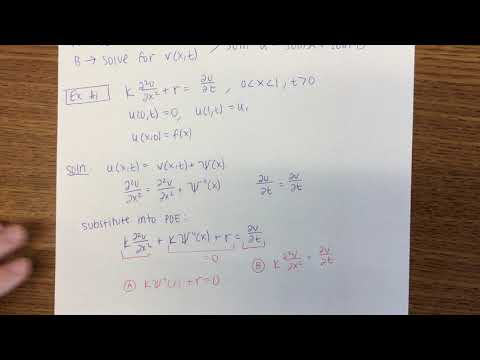 B → solve for v(x,t)
Ex #1 k ∂²u/∂x² + r = ∂u/∂t , 0<x<1, t>0
u(0,t) = 0, u(1,t) = u₁
u(x,0) = f(x)
soln: u(x,t) = v(x,t) + Ψ(x)
∂²u/∂x² = ∂²v/∂x² + Ψ''(x) ∂u/∂t = ∂v/∂t
substitute into PDE:
k ∂²v/∂x² + kΨ''(x) + r = ∂v/∂t
=0
Ⓐ kΨ''(x) + r = 0 Ⓑ k ∂²v/∂x² = ∂v/∂t